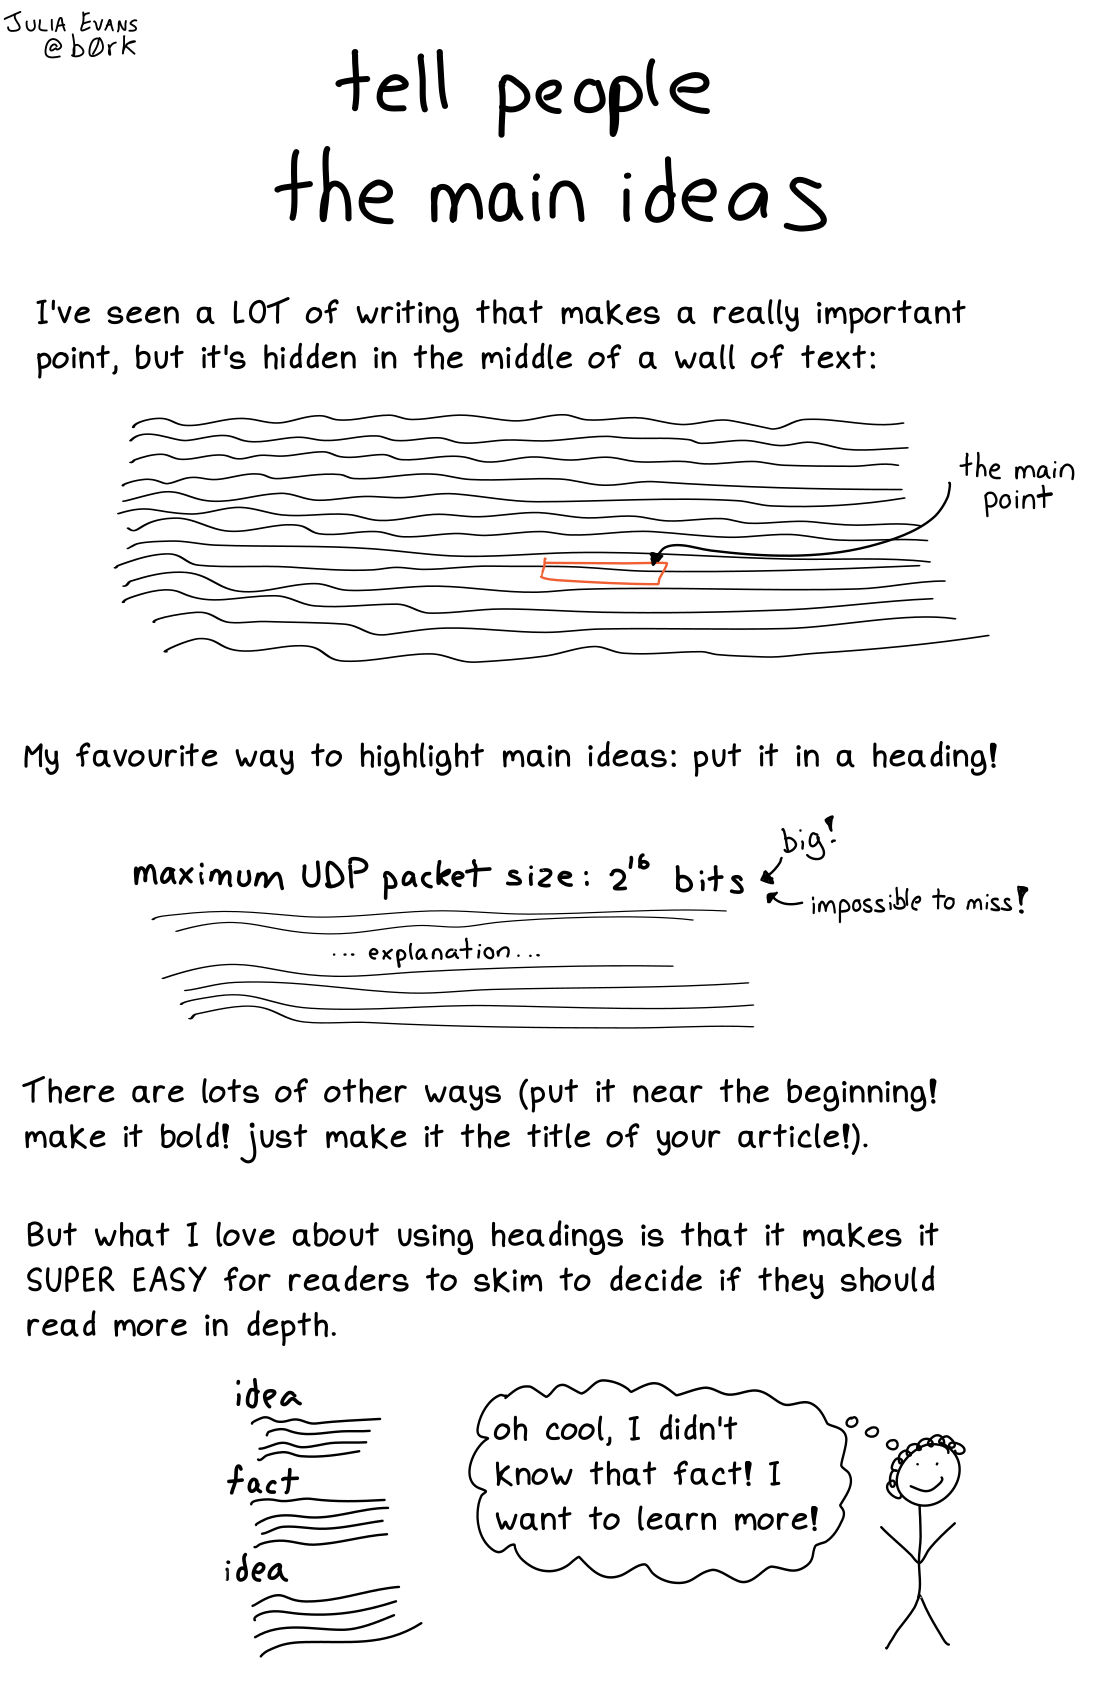 JULIA EVANS
@b0rk
tell people
the main ideas
I've seen a LOT of writing that makes a really important
point, but it's hidden in the middle of a wall of text:
the main
point
My favourite way to highlight main ideas: put it in a heading!
big!
maximum UDP packet size: 2¹⁶ bits
impossible to miss!
... explanation...
There are lots of other ways (put it near the beginning!
make it bold! just make it the title of your article!).
But what I love about using headings is that it makes it
SUPER EASY for readers to skim to decide if they should
read more in depth.
idea
fact
idea
oh cool, I didn't
know that fact! I
want to learn more!